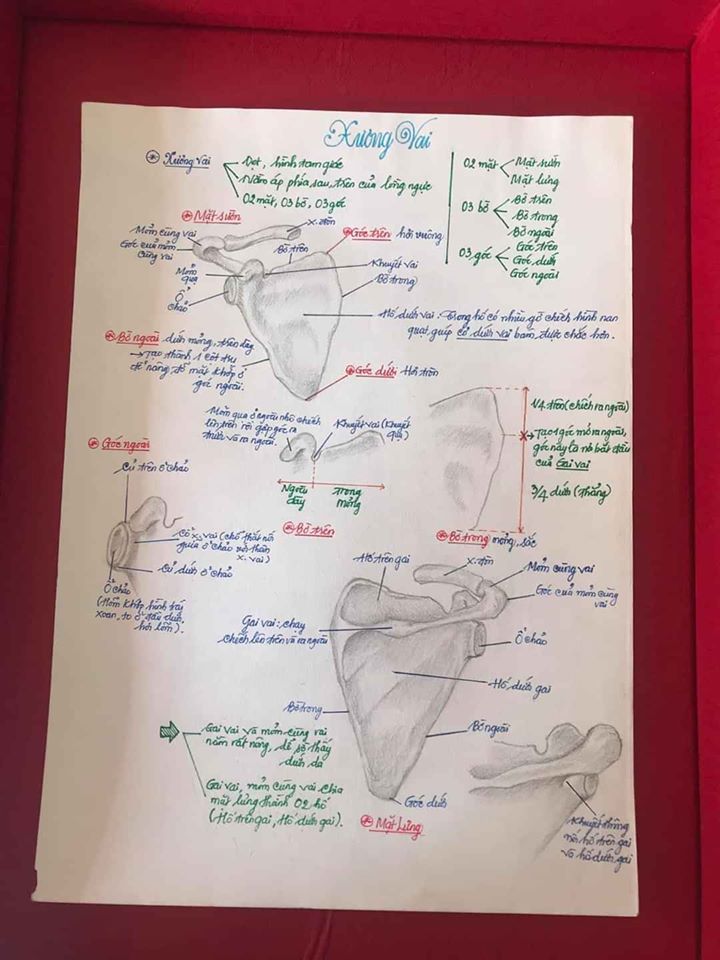 Xương Vai
Xương vai
Dẹt, hình tam giác
Nằm áp phía sau, trên của lồng ngực
02 mặt, 03 bờ, 03 góc
02 mặt
Mặt sườn
Mặt lưng
03 bờ
Bờ trên
Bờ trong
Bờ ngoài
03 góc
Góc trên
Góc dưới
Góc ngoài
Mặt sườn
Mỏm cùng vai
Góc của mỏm
cùng vai
Mỏm
quạ
Ổ
chảo
X. đòn
Bờ trên
Góc trên hơi vuông
Khuyết vai
Bờ trong
Hố dưới vai: Trong hố có nhiều gờ chếch hình nan
quạt, giúp cơ dưới vai bám được chắc hơn.
Bờ ngoài dưới mỏng, trên dày
→ Tạo thành 1 cột trụ
để nâng đỡ mặt khớp ở
góc ngoài.
Góc dưới Hơi tròn
Mỏm quạ ở ngoài nhô chếch
lên trên rồi gấp góc ra
trước và ra ngoài.
Khuyết vai (Khuyết
quạ)
Ngoài
dày
trong
mỏng
Bờ trên
1/4 trên (chếch ra ngoài)
X→ Tạo 1 góc mở ra ngoài,
góc này là nơi bắt đầu
của Gai vai
3/4 dưới (thẳng)
Bờ trong mỏng, sắc
Góc ngoài
Củ trên ổ chảo
Cổ x. vai (chỗ thắt nối
giữa ổ chảo với thân
x. vai)
Củ dưới ổ chảo
Ổ chảo
(Hõm khớp hình trái
xoan, to ở đầu dưới,
hơi lõm).
Hố trên gai
X. đòn
Mỏm cùng vai
Góc của mỏm cùng
vai
Gai vai: chạy
chếch lên trên và ra ngoài
Ổ chảo
Hố dưới gai
Bờ trong
Bờ ngoài
Góc dưới
Mặt lưng
Gai vai và mỏm cùng vai
nằm rất nông, dễ sờ thấy
dưới da
Gai vai, mỏm cùng vai chia
mặt lưng thành 02 hố
(Hố trên gai, Hố dưới gai).
Khuyết thông
nối hố trên gai
và hố dưới gai